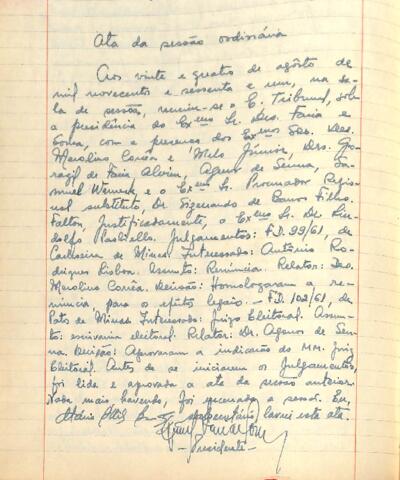 Ata da sessão ordinária
Aos vinte e quatro de agôsto de
mil novecentos e sessenta e um, na sa-
la de sessão, reuniu-se o E. Tribunal, sob
a presidência do Exmo Sr. Des. Faria e
Sousa, com a presença dos Exmos Srs. Des.
Merolino Corrêa e Melo Júnior, Drs.
de Faria Alvim, Agenor de Senna, Sa-
muel Werneck e o Exmo Sr. Procurador Regio-
nal substituto, Dr. Sizenando de Barros Filho.
Faltou, justificadamente, o Exmo Sr. Dr. Lin-
dolfo Paoliello. Julgamentos: F.D. 99/61, de
Cachoeira de Minas Interessado: Antônio Ro-
drigues Lisboa. Assunto: Renúncia. Relator: Des.
Merolino Corrêa. Decisão: Homologaram a re-
núncia para os efeitos legais. - F.D. 102/61, de
Patos de Minas Interessado: Juízo Eleitoral. Assun-
to: escrivania eleitoral. Relator: Dr. Agenor de Sen-
na. Decisão: Aprovaram a indicação do MM. Juiz
Eleitoral. Antes de se iniciarem os julgamentos,
foi lida e aprovada a ata da sessão anterior.
Nada mais havendo, foi encerrada a sessão. Eu,
secretário, lavrei esta ata.
- Presidente -